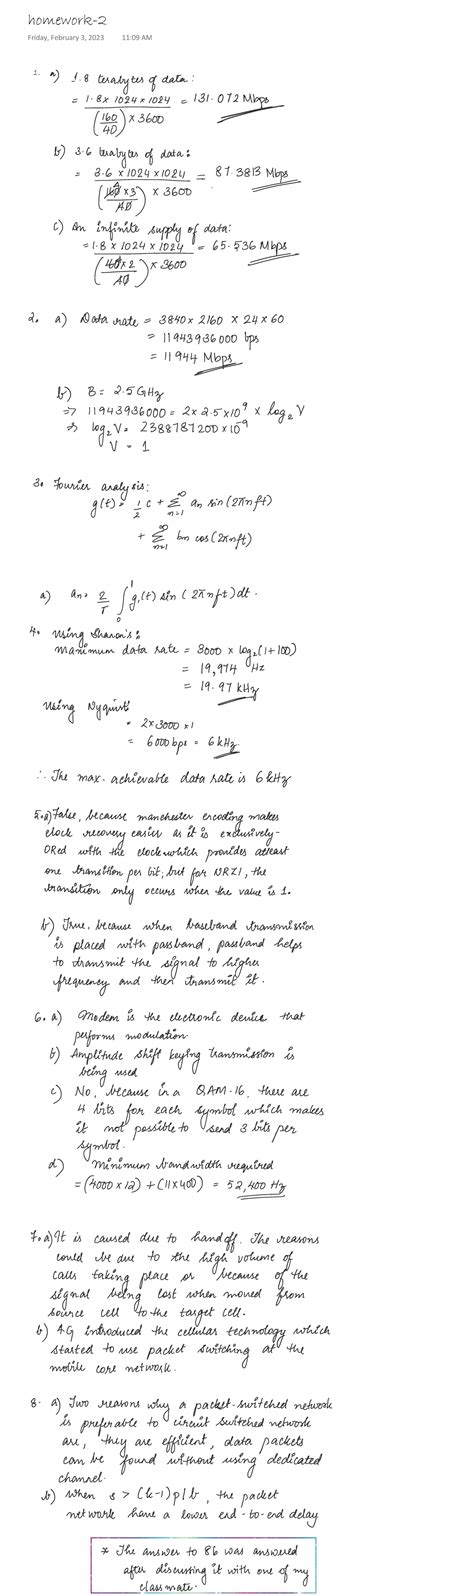 homework-2
Friday, February 3, 2023 11:09 AM
1. a) 1.8 terabytes of data:
= 1.8 x 1024 x 1024 / (160/40) x 3600 = 131.072 Mbps
b) 3.6 terabytes of data:
= 3.6 x 1024 x 1024 / (160 x 3/40) x 3600 = 87.3813 Mbps
c) An infinite supply of data:
= 1.8 x 1024 x 1024 / (160 x 2/40) x 3600 = 65.536 Mbps
2. a) Data rate = 3840 x 2160 x 24 x 60
= 11943936000 bps
= 11944 Mbps
b) B = 2.5 GHz
=> 11943936000 = 2 x 2.5 x 10^9 x log₂ V
=> log₂ V = 2388787200 x 10^-9
V = 1
3. Fourier analysis:
g(t) = 1/2 c + ∑ n=1 ∞ an sin(2πnft)
+ ∑ n=1 ∞ bn cos(2πnft)
a) an = 2/T ∫ 0 1 g,(t) sin (2πnft) dt.
4. Using Sharon's:
Maximum data rate = 3000 x log₂(1+100)
= 19,974 Hz
= 19.97 kHz
Using Nyquist
= 2 x 3000 x 1
= 6000 bps = 6 kHz
∴ The max. achievable data rate is 6 kHz
5. a) False, because manchester encoding makes
clock recovery easier as it is exclusively-
ORed with the clock which provides atleast
one transition per bit; but for NRZI, the
transition only occurs when the value is 1.
b) True, because when baseband transmission
is placed with passband, passband helps
to transmit the signal to higher
frequency and then transmit it.
6. a) Modem is the electronic device that
performs modulation.
b) Amplitude shift keying transmission is
being used
c) No, because in a QAM-16, there are
4 bits for each symbol which makes
it not possible to send 3 bits per
symbol.
d) Minimum bandwidth required
= (4000 x 12) + (11 x 400) = 52,400 Hz
7. a) It is caused due to handoff. The reasons
could be due to the high volume of
calls taking place or because of the
signal being lost when moved from
source cell to the target cell.
b) 4G introduced the cellular technology which
started to use packet switching at the
mobile core network.
8. a) Two reasons why a packet-switched network
is preferable to circuit switched network
are, they are efficient, data packets
can be found without using dedicated
channel.
b) When s > (k-1)p/b, the packet
network have a lower end-to-end delay
* The answer to 8b was answered
after discussing it with one of my
classmate.